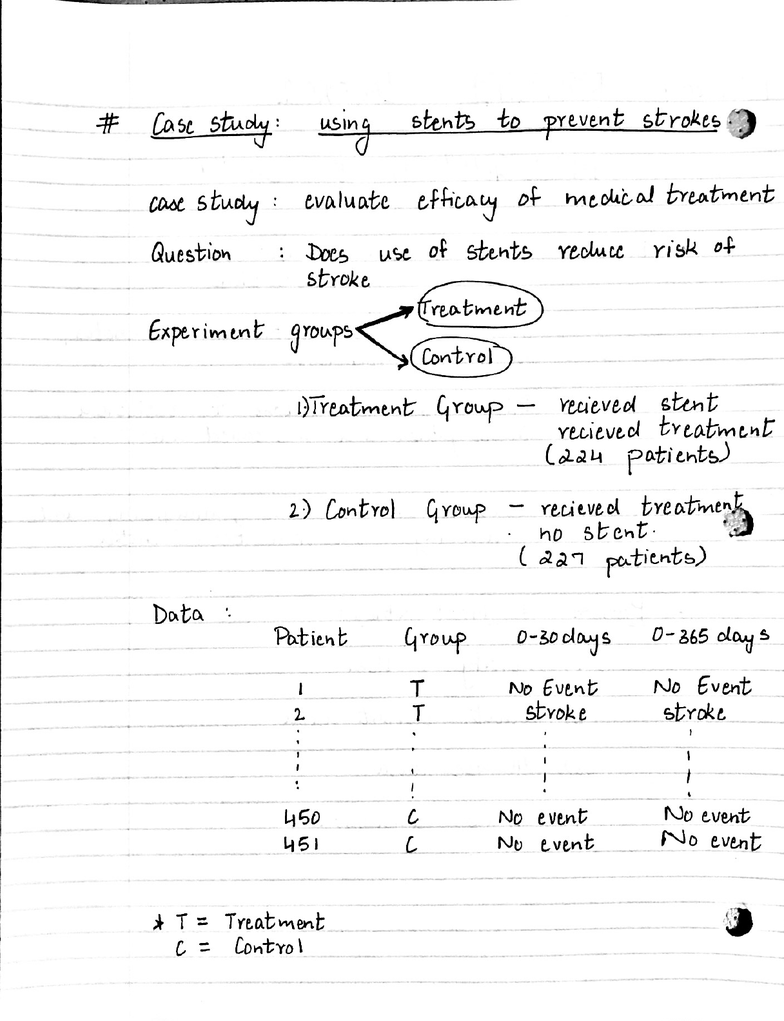 # Case study: using stents to prevent strokes
case study : evaluate efficacy of medical treatment
Question : Does use of stents reduce risk of
stroke
Experiment groups
Treatment
Control
1.)Treatment Group – recieved stent
recieved treatment
(224 patients)
2.) Control Group – recieved treatment
no stent.
(227 patients)
Data :
Patient Group 0-30 days 0-365 days
1 T No Event No Event
2 T stroke stroke
450 C No event No event
451 C No event No event
* T = Treatment
C = Control